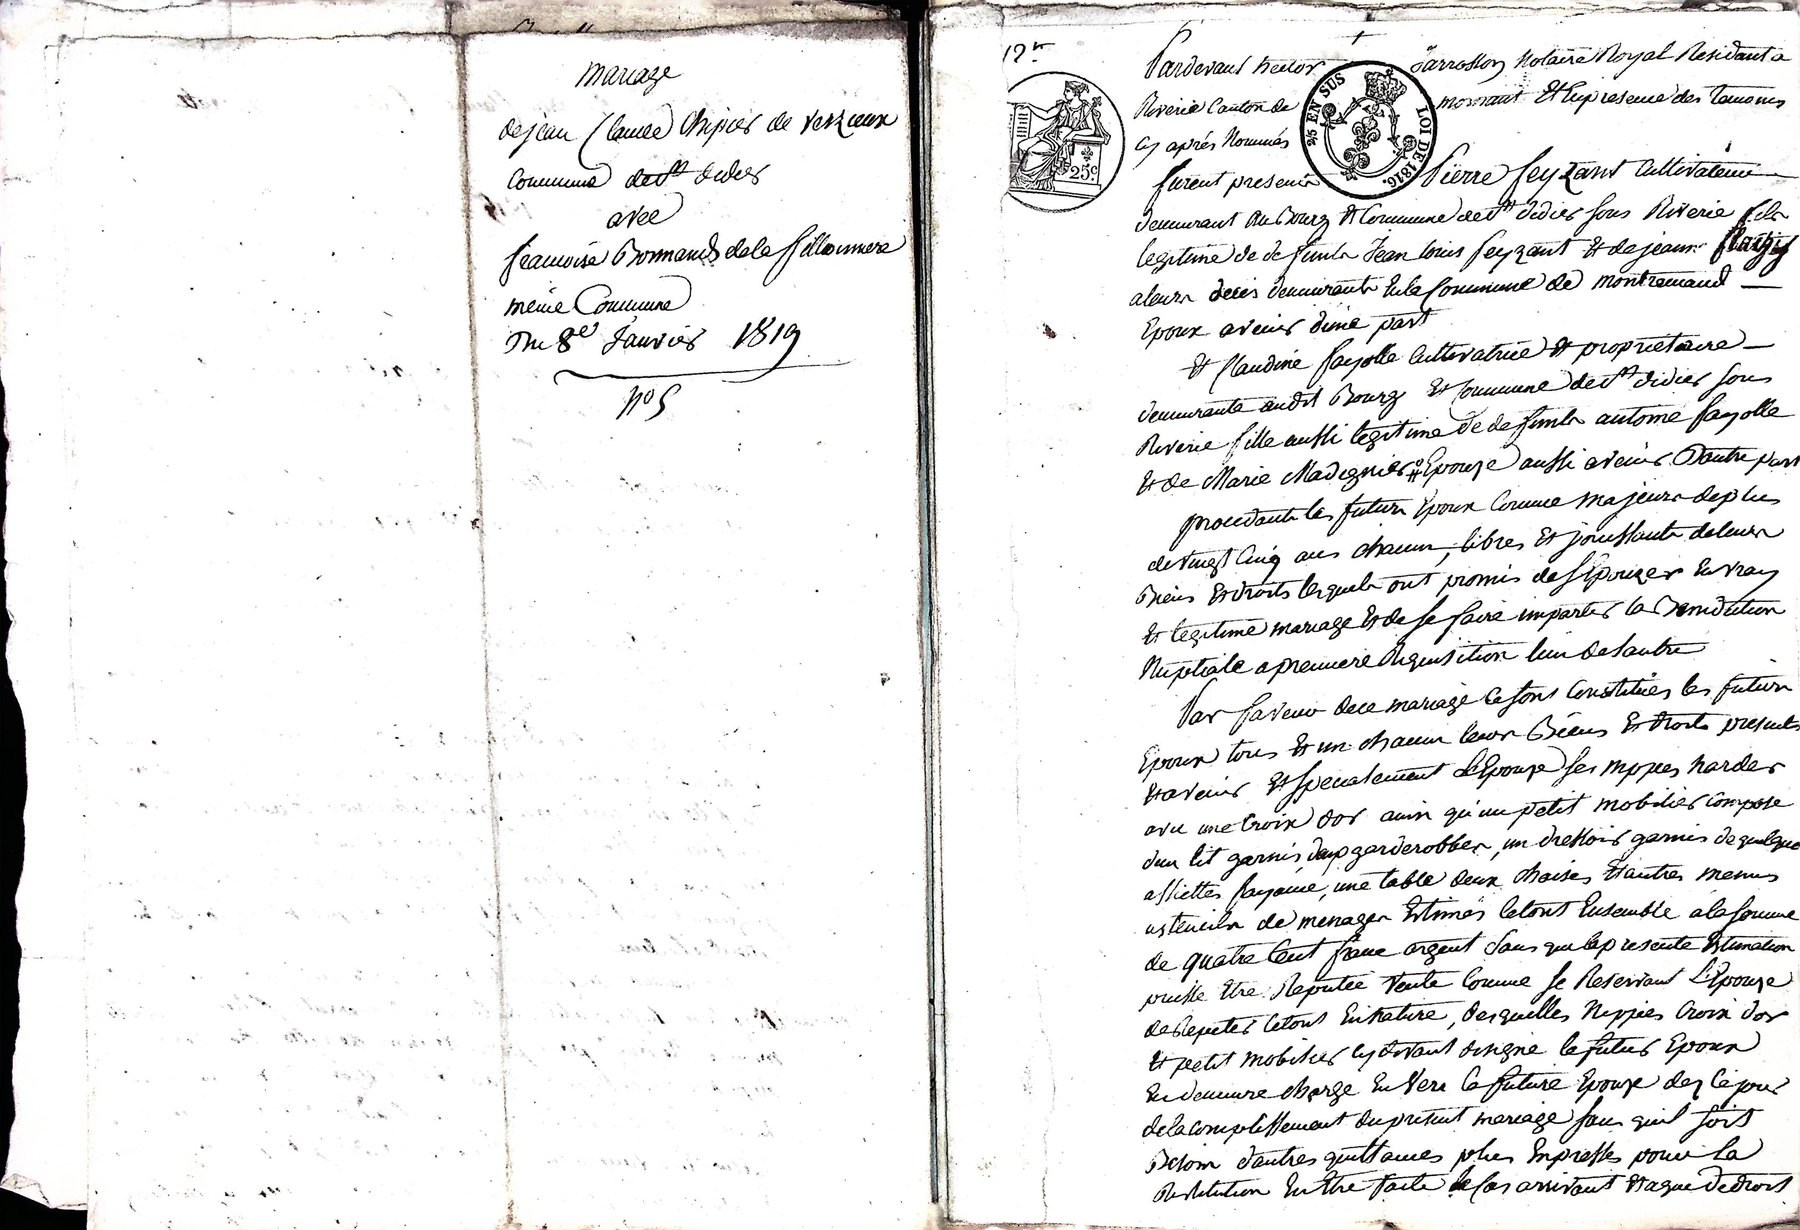 mariage
de jean Claude Chipier de verzieux
Commune de St didier
avec
francoise Bonnand de la fillonniere
même Commune
Du 8e Janvier 1819
no 5
12 r
25 c
25 EN SUS
LOI DE 1816.
Pardevant hector Jarrosson Notaire Royal Residant a
Riverie Canton de mornant Et En presence des temoins
cy aprés Nommés
furent presents Pierre feyzant Cultivateur
demeurant au Bourg Et Commune de St didier sous Riverie fils
legitime de defunts Jean louis feyzant Et de jeanne
a leurs decés demeurants En la Commune de montromand
Epoux a venir dune part
Et Claudine fayolle Cultivatrice Et proprietaire
demeurante audit Bourg Et Commune de St didier sous
Riverie fille aussi legitime de defunts antoine fayolle
Et de Marie Madignier Epouze aussi a venir Dautre part
procedants les futurs Epoux Comme majeurs de plus
de vingt Cinq ans chacun, libres Et jouissants de leurs
Biens Et droits lesquels ont promis de sEpouzer En vray
Et legitime mariage Et de se faire impartir la Benediction
Nuptiale a premiere Requisition lun de lautre
Par faveur de ce mariage se sont Constitués les futurs
Epoux tous Et un chacun leurs Biens Et droits presents
Et a venir Et specialement LEpouze ses nippes hardes
avec une Croix dor ainsi qu'un petit mobilier compose
dun lit garnis deux garderobbes, un dressoir garnis de quelque
assiettes fayance, une table deux chaises Et autres menus
ustencils de menages Estimés le tout Ensemble a la somme
de quatre Cent franc argent sans que la presente Estimation
puisse Etre Reputée Vente Comme se Reservant L'Epouze
de Repeter le tout En Nature, desquelles Nippes Croix dor
Et petit mobilier cy devant designe le futur Epoux
En demeure chargé En Vers la future Epouze dez le jour
de lacomplissement du present mariage sans quil soit
Besoin dautres quittances plus Expresses pour la
Restitution En Etre faite le Cas arrivant Et a que de droit